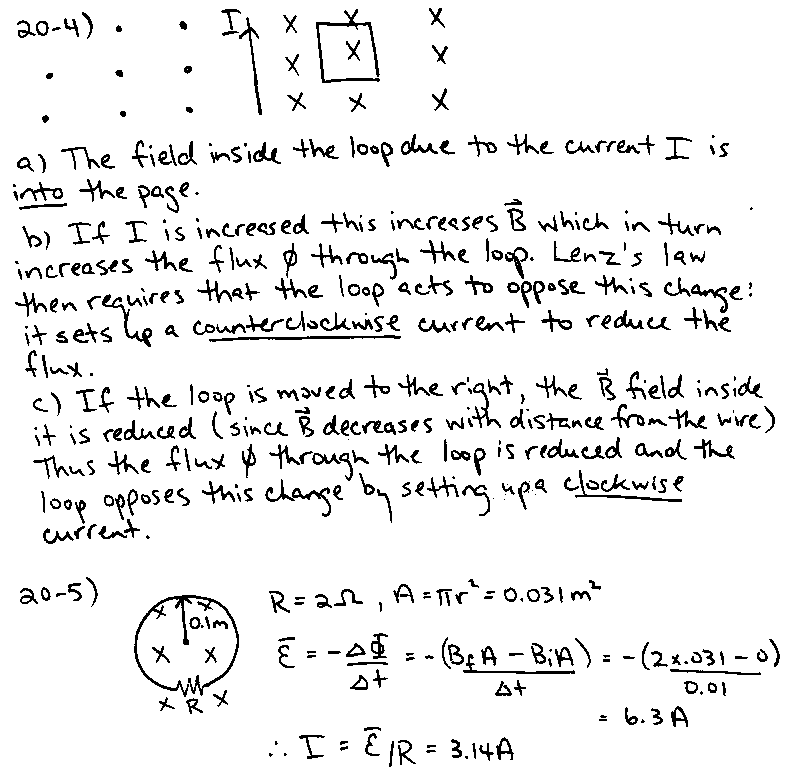 20-4) I
a) The field inside the loop due to the current I is
into the page.
b) If I is increased this increases B⃗ which in turn
increases the flux φ through the loop. Lenz's law
then requires that the loop acts to oppose this change:
it sets up a counterclockwise current to reduce the
flux.
c) If the loop is moved to the right, the B⃗ field inside
it is reduced (since B⃗ decreases with distance from the wire)
Thus the flux φ through the loop is reduced and the
loop opposes this change by setting up a clockwise
current.
20-5) R = 2Ω, A = πr² = 0.031 m²
0.1m
R
ε̄ = -ΔΦ/Δt = -(B_f A - B_i A)/Δt = -(2×.031 - 0)/0.01
= 6.3 A
∴ I = ε̄/R = 3.14A